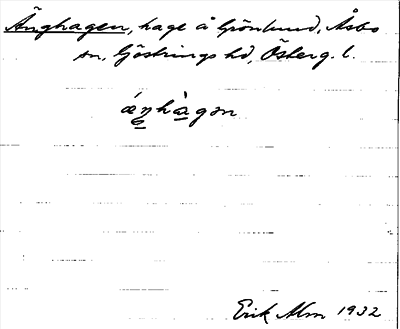 Änghagen, hage å Grönlund, Åsbo
sn, Göstrings hd, Österg. l.
ǽŋhàgən
Erik Alm 1932